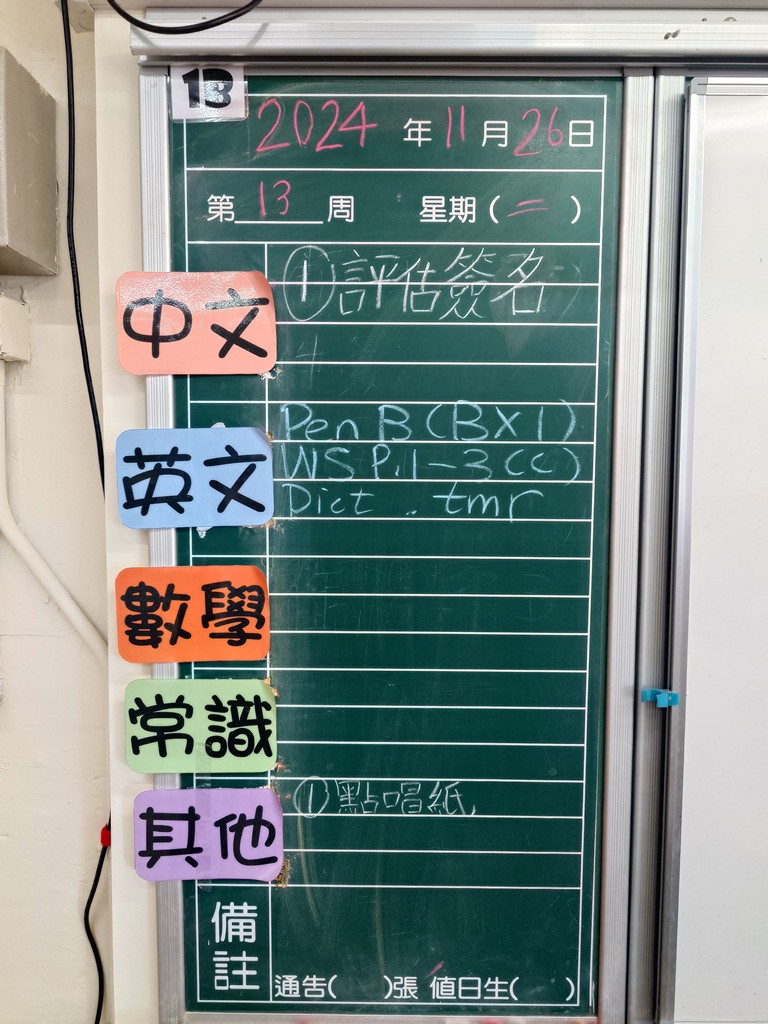 13
2024年11月26日
第13周 星期(二)
中文
①評估簽名
英文
Pen B (B×1)
WS P.1-3 (C)
Dict . tmr
數學
常識
其他
①點唱紙
備註
通告( )張 值日生( )